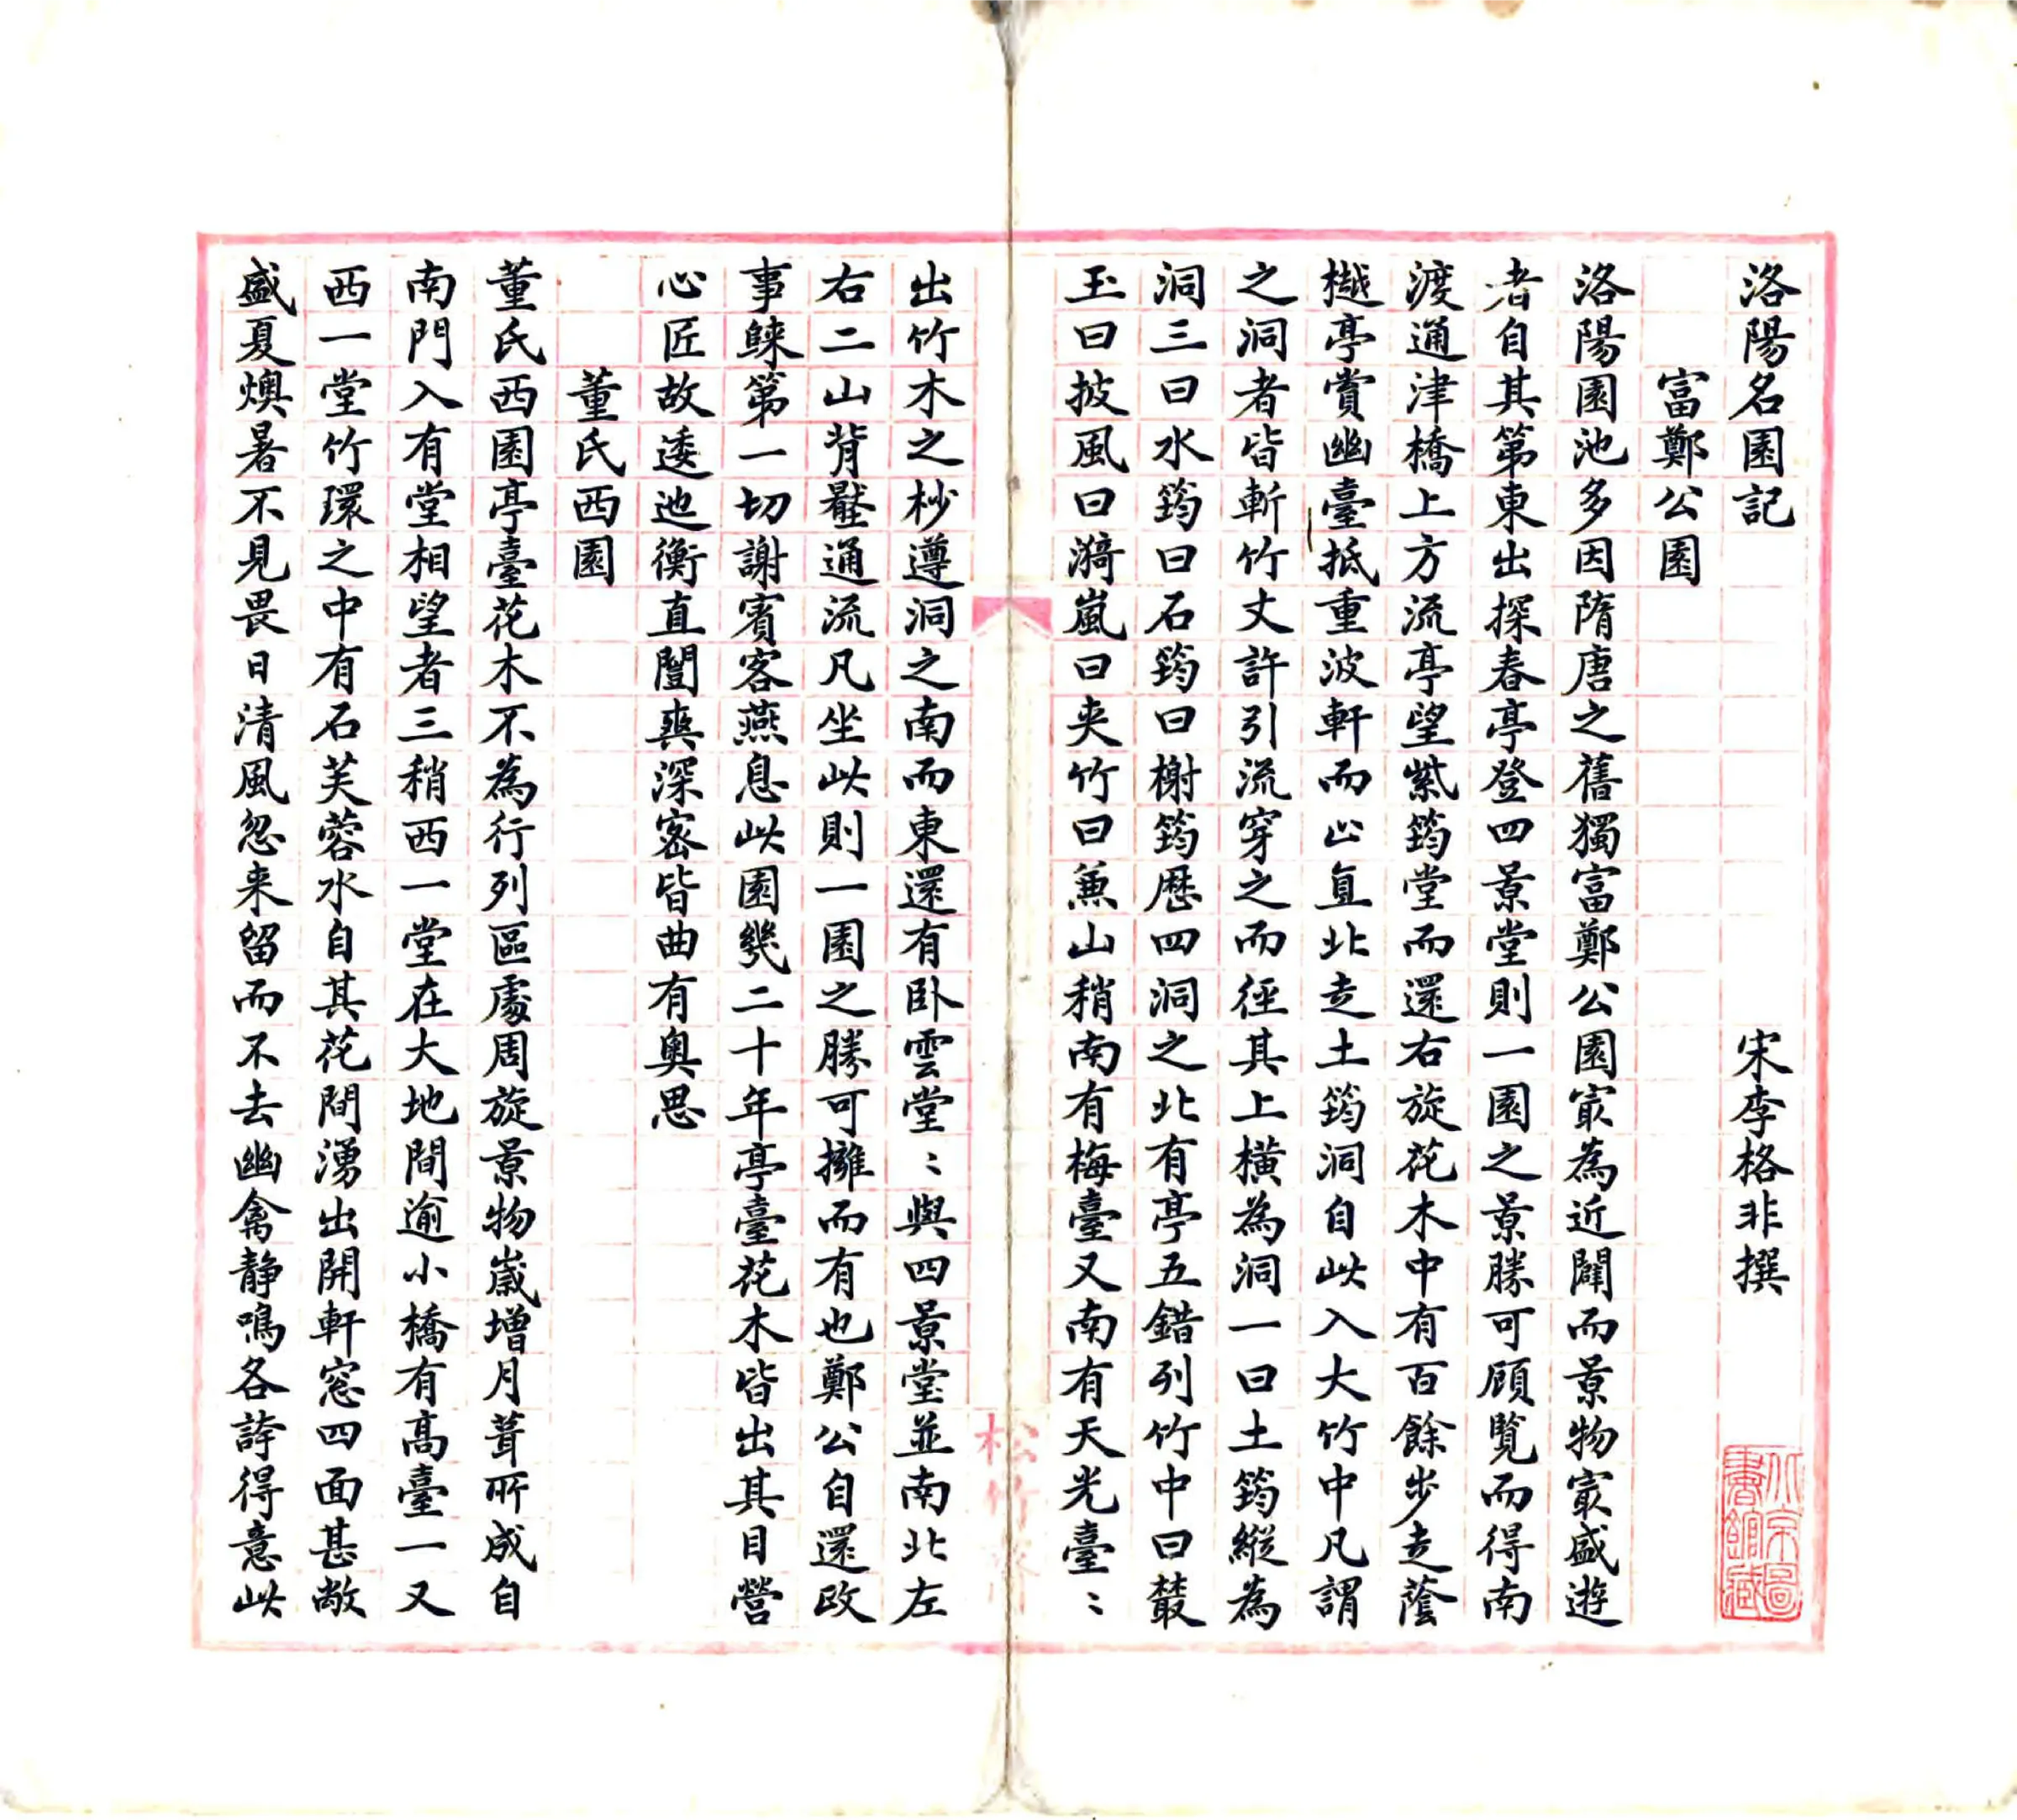 洛陽名園記　宋李格非撰
富鄭公園
洛陽園池多因隋唐之舊獨富鄭公園㝡為近闢而景物㝡盛逰
者自其第東出探春亭登四景堂則一園之景勝可顧覧而得南
渡通津橋上方流亭望紫筠堂而還右旋花木中有百餘步走蔭
樾亭賞幽臺抵重波軒而止直北走土筠洞自此入大竹中凡謂
之洞者皆斬竹丈許引流穿之而徑其上横為洞一曰土筠縱為
洞三曰水筠曰石筠曰榭筠歷四洞之北有亭五錯列竹中曰藂
玉曰披風曰漪嵐曰夾竹曰兼山稍南有梅臺又南有天光臺：
出竹木之杪遵洞之南而東還有卧雲堂：與四景堂並南北左
右二山背壓通流凡坐此則一園之勝可擁而有也鄭公自還政
事歸第一切謝賓客燕息此園幾二十年亭臺花木皆出其目營
心匠故逶迤衡直闓爽深密皆曲有奧思
董氏西園
董氏西園亭臺花木不為行列區處周旋景物歲增月葺所成自
南門入有堂相望者三稍西一堂在大地間逾小橋有高臺一又
西一堂竹環之中有石芙蓉水自其花間湧出開軒窓四面甚敞
盛夏燠暑不見畏日清風忽来留而不去幽禽静鳴各誇得意此
松竹
北京圖
書館藏